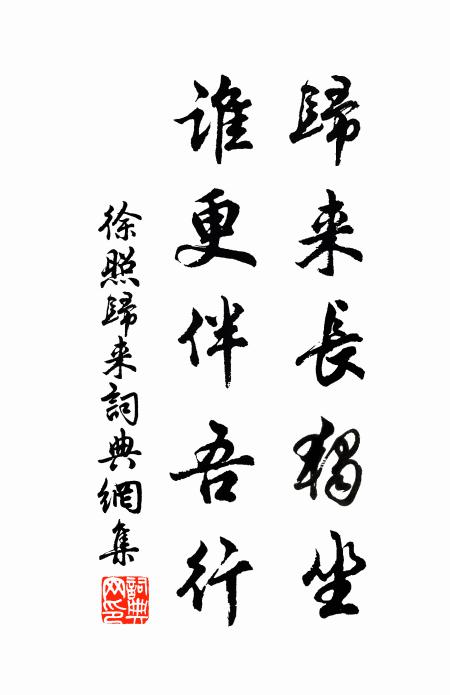 歸来長獨坐
誰更伴吾行
徐照歸来詞典網集
詞典網印